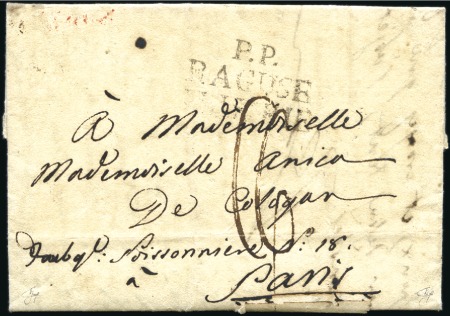 P.P.
RAGUSE
À Mademoiselle
Mademoiselle Anica
De Cologan
Faubg. Poissonniere N.° 18.
à
Paris